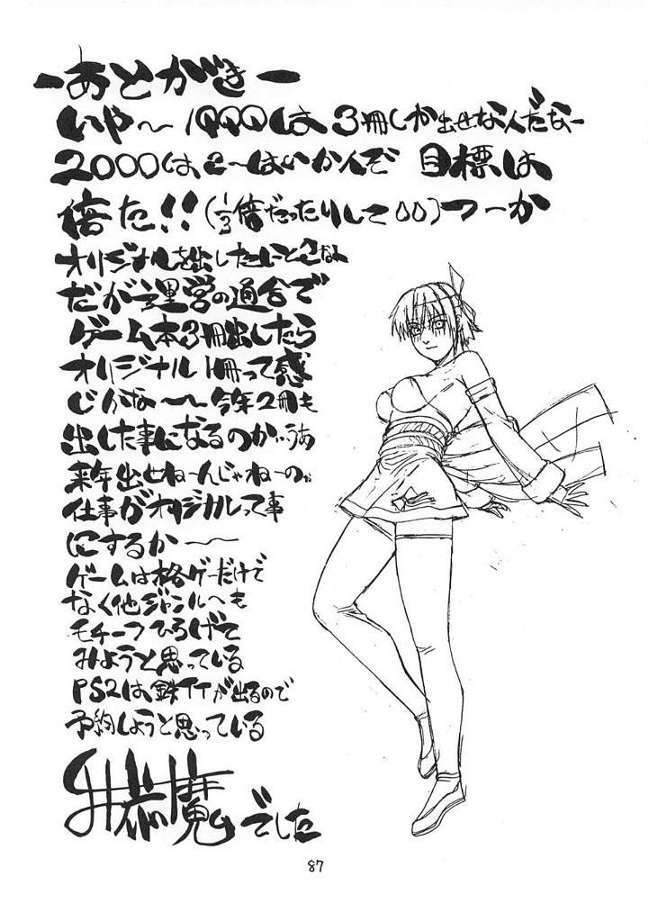 ーあとがきー
いや〜1999は3冊しか出せなんだなー
2000は、2〜はいかんぞ 目標は
倍だ!!(1/3倍だったりして00)つーか
オリジナルを出したーいとこなん
だが運営の都合で
ゲーム本3冊出したら
オリジナル1冊って感
じかな〜今年2冊も
出した事になるのか…うあ
来年出せね〜んじゃねーの
仕事がオリジナルって事
にするかー
ゲームは格ゲーだけで
なく他ジャンルへも
モチーフひろげて
みようと思っている
PS2は鉄TTが出るので
予約しようと思っている
魔 でした
87